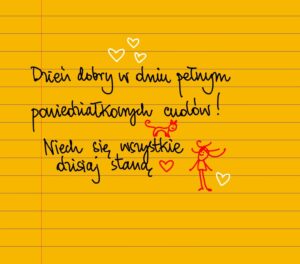 Dzień dobry w dniu pełnym
poniedziałkowych cudów!
Niech się wszystkie
dzisiaj staną